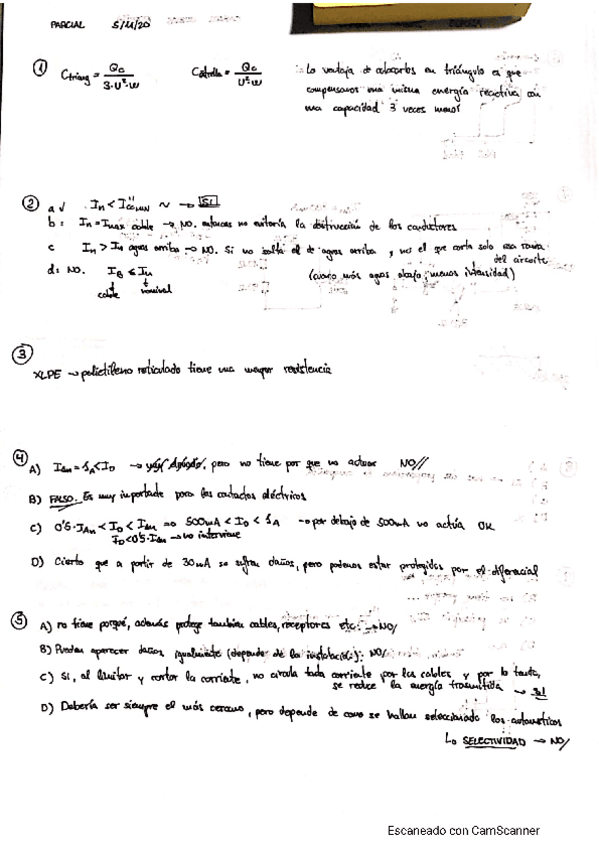 PARCIAL 5/11/20
① Ctriáng = Qc / 3·U²·w Cestrella = Qc / U²·w La ventaja de colocarlos en triángulo es que
compensamos una misma energía reactiva con
una capacidad 3 veces menor
② a √ In < → SI
b: In = Imax cable → NO. entonces no evitaría la destrucción de los conductores
c In > In aguas arriba → NO. Si no salta el de aguas arriba, y no el que corta solo esa rama
del circuito
d: NO. IB ≤ In (cuanto más aguas abajo, menos intensidad)
cable nominal
③
XLPE → polietileno reticulado tiene una mayor resistencia
④ A) IΔn = 1A < ID → pero no tiene por que no actuar NO//
B) FALSO. Es muy importante para los contactos eléctricos
C) 0'5·IΔn < ID < IΔn => 500mA < ID < 1A → por debajo de 500mA no actúa OK
ID<0'5·IΔn → no interviene
D) Cierto que a partir de 30mA se sufren daños, pero podemos estar protegidos por el diferencial
⑤ A) no tiene porqué, además protege también cables, receptores etc. → NO/
B) Pueden aparecer daños igualmente (depende de la instalación): NO/
C) SI, al limitar y cortar la corriente, no circula toda corriente por los cables y por lo tanto,
se reduce la energía trasmitida → SI
D) Debería ser siempre el más cercano, pero depende de como se hallan seleccionado los automáticos
↳ SELECTIVIDAD → NO/
Escaneado con CamScanner